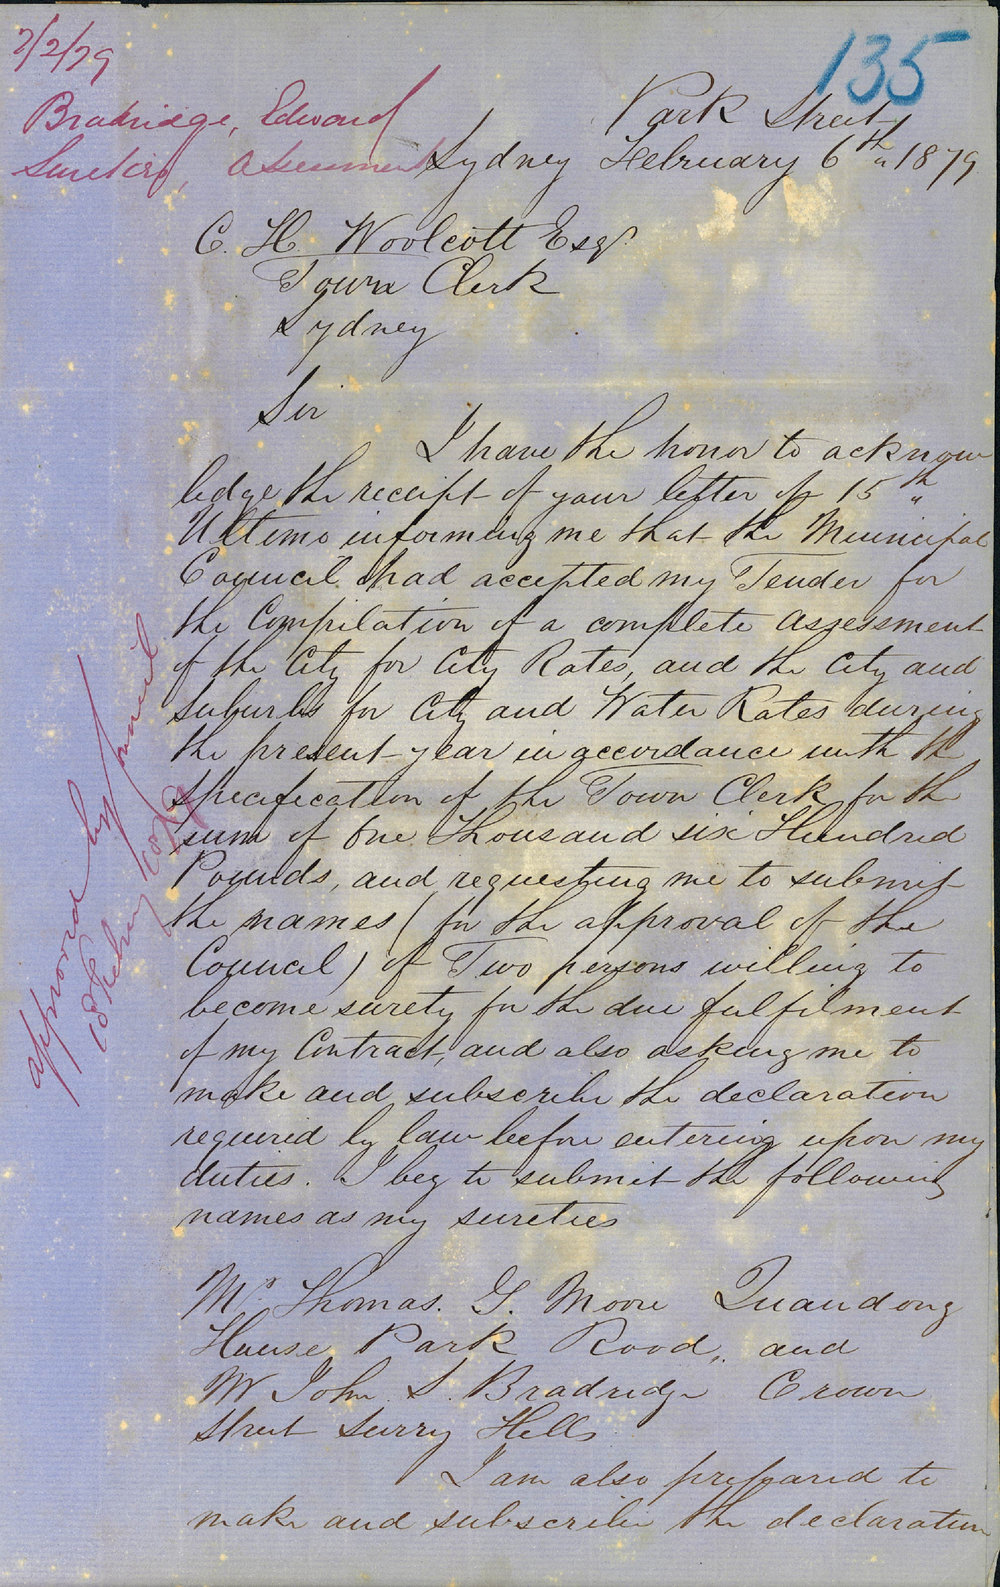 7/2/79
135
Bradridge, Edward
Sureties, Assessment
Park Street
Sydney February 6th 1879
C. H. Woolcott Esqr.
Town Clerk
Sydney
Sir
I have the honor to acknow
ledge the receipt of your letter of 15th
Ultimo informing me that the Municipal
Council had accepted my Tender for
the Compilation of a complete Assessment
of the City for City Rates, and the City and
Suburbs for City and Water Rates during
the present year in accordance with the
specification of the Town Clerk for the
sum of One Thousand six Hundred
Pounds, and requesting me to submit
the names (for the approval of the
Council) of Two persons willing to
become surety for the due fulfilment
of my Contract, and also asking me to
make and subscribe the declaration
required by law before entering upon my
duties. I beg to submit the following
names as my sureties
Mr Thomas. G. Moore Quandong
House Park Road, and
Mr John S. Bradridge Crown
Street Surry Hills
I am also prepared to
make and subscribe the declaration
approved by Council
18 Feby 1879